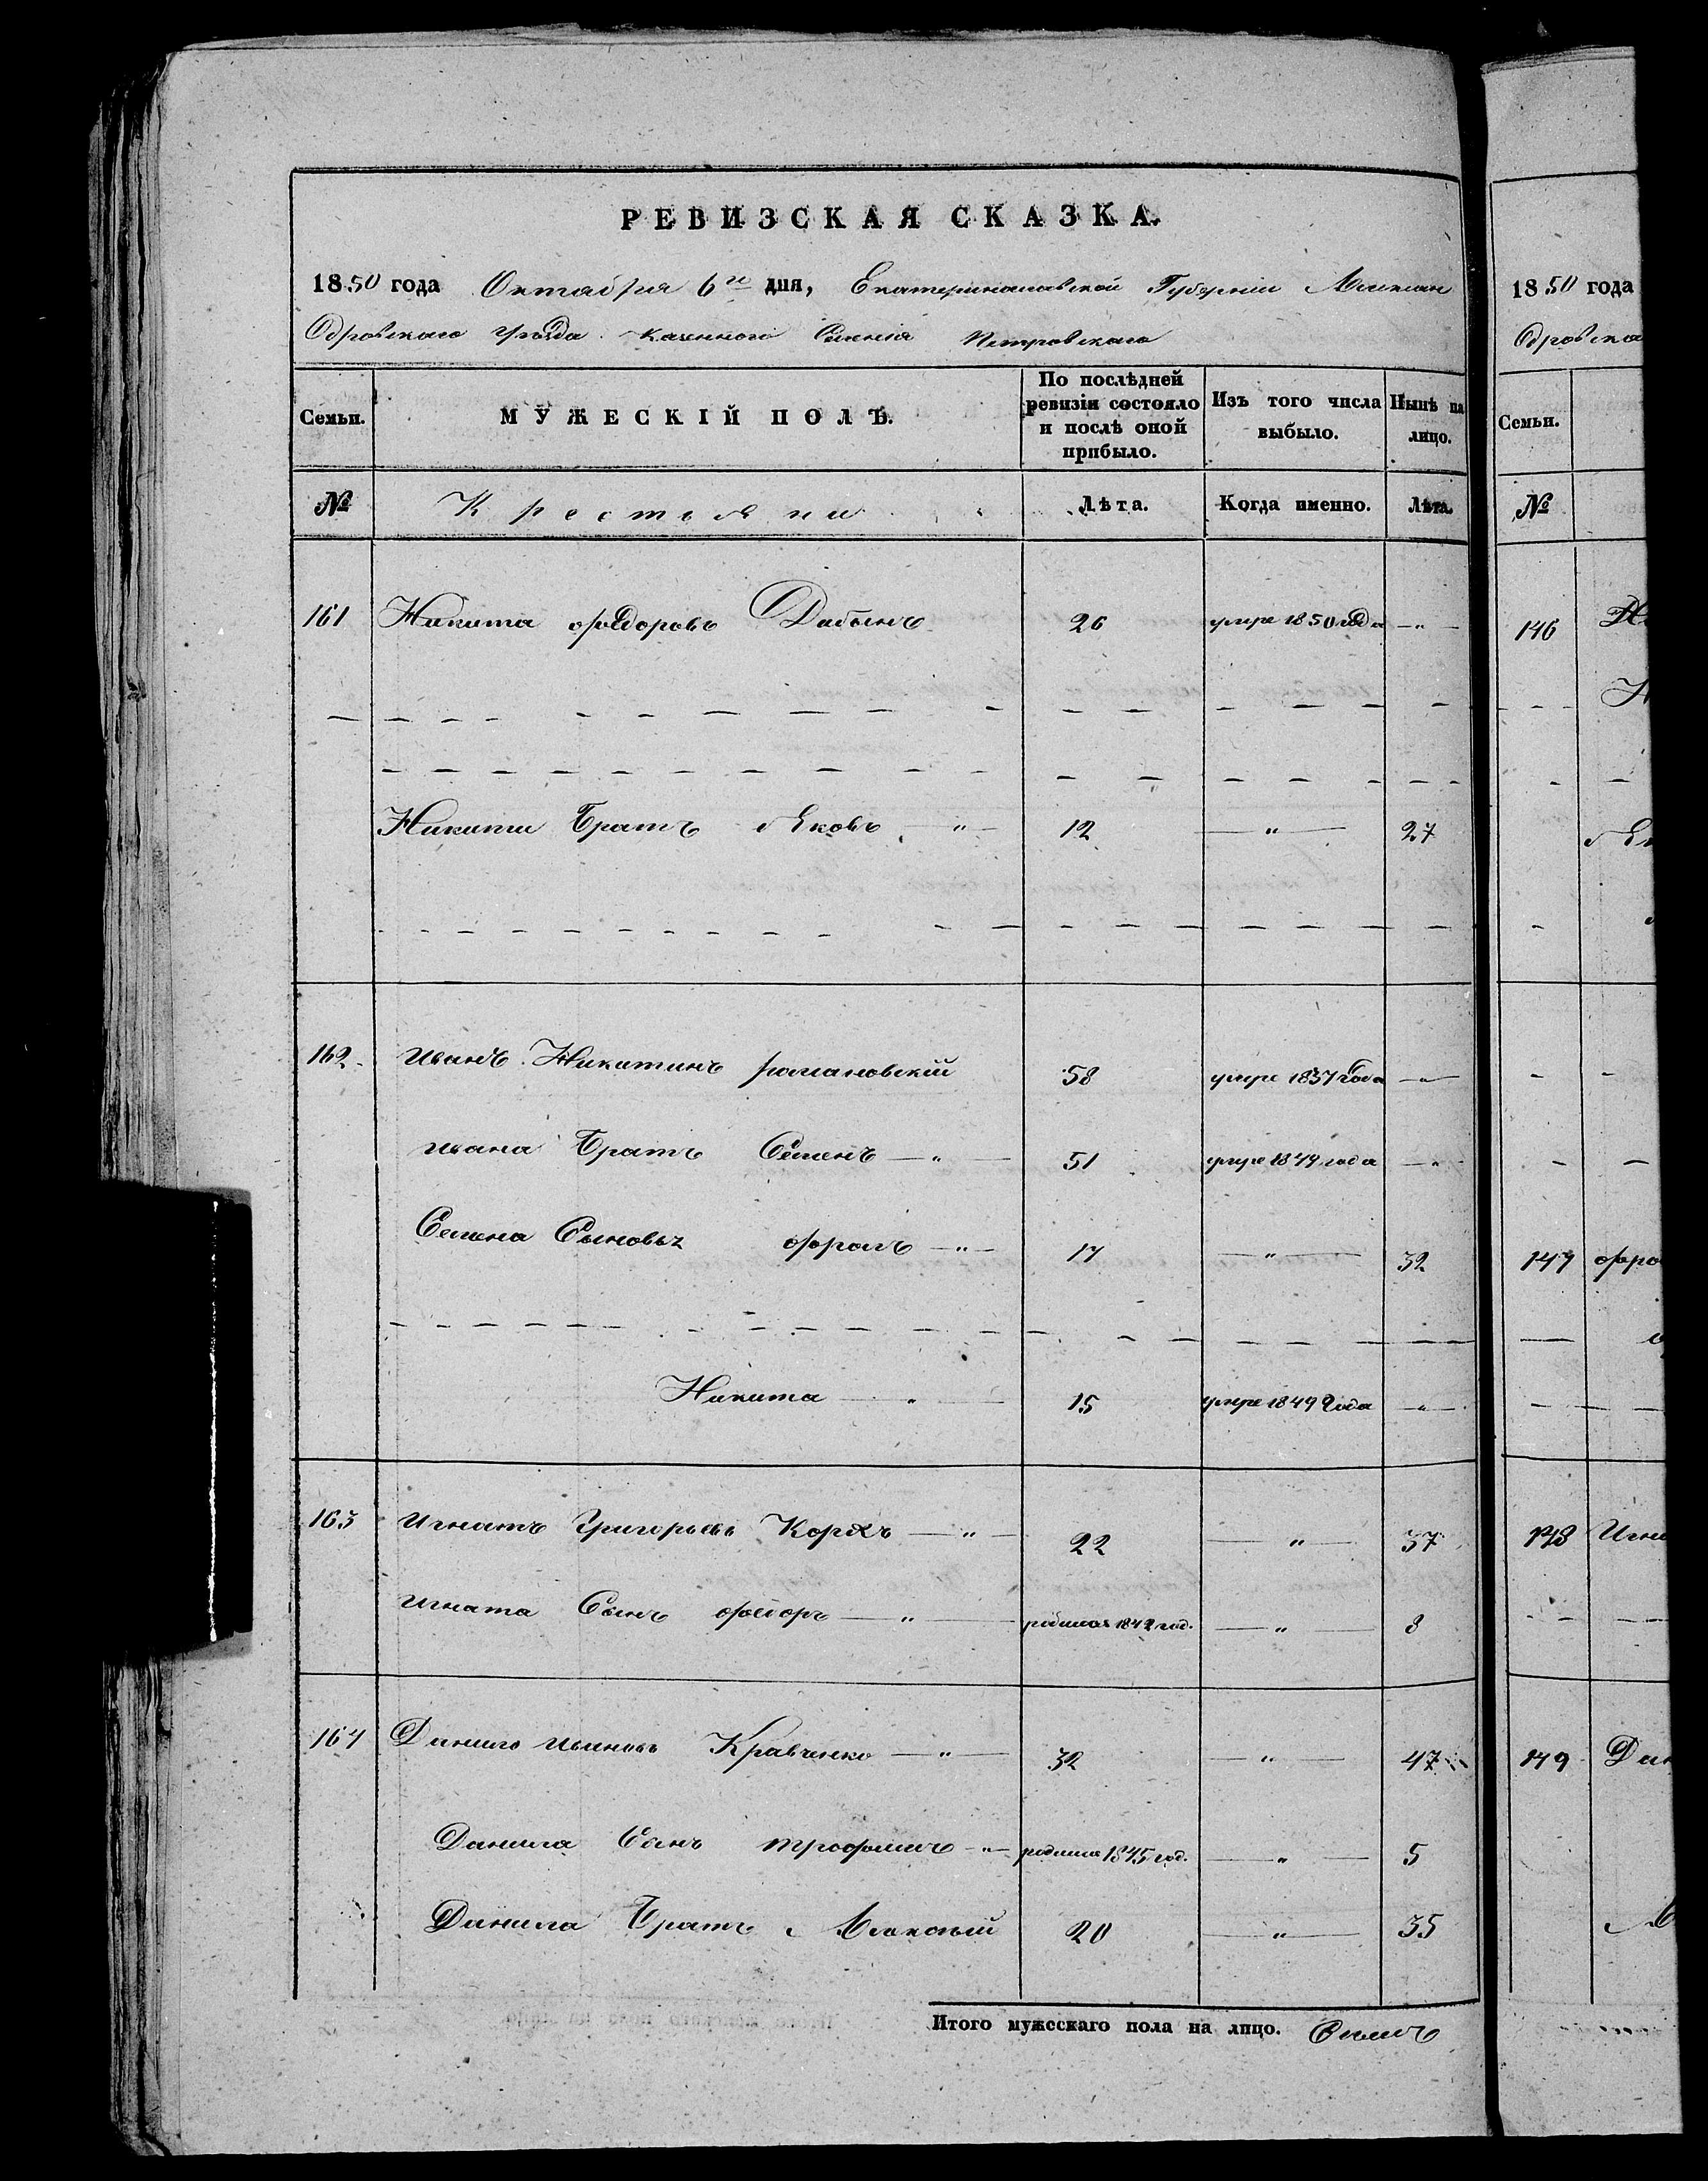 РЕВИЗСКАЯ СКАЗКА.
1850 года Октября 6го дня, Екатеринославской Губернии Алексан
Одровскаго Уѣзда Казенного Селения Петровскаго
Семьи. МУЖЕСКІЙ ПОЛЪ. По послѣдней ревизіи состояло и послѣ оной прибыло. Изъ того числа выбыло. Нынѣ на лицо.
№ Крестьяни Лѣта. Когда именно. Лѣта.
161 Никита Федоровъ 26 умре 1850 года — " —
Никиты Братъ Яковъ — " — 12 — " — 27
162. Иванъ Никитинъ Романовскій 58 умре 1837 года — " —
Ивана Братъ Семенъ — " — 51 умре 1849 года — " —
Семена Сыновья Фролъ — " — 17 — " — 32
Никита — " — 15 умре 1849 Года — " —
163 Игнатъ Григорьевъ Коржъ — " — 22 — " — 37
Игната Сынъ Федоръ — " — родился 1842 год. — " — 8
164 Данило Ивановъ Кравченко — " — 32 — " — 47
Данила Сынъ Трофимъ — " — родился 1845 год. — " — 5
Данила Братъ Алексѣй 20 — " — 35
Итого мужескаго пола на лицо.
1850 года
Одровска
Семьи.
№
146
147 Фро
148 Игна
149 Дан